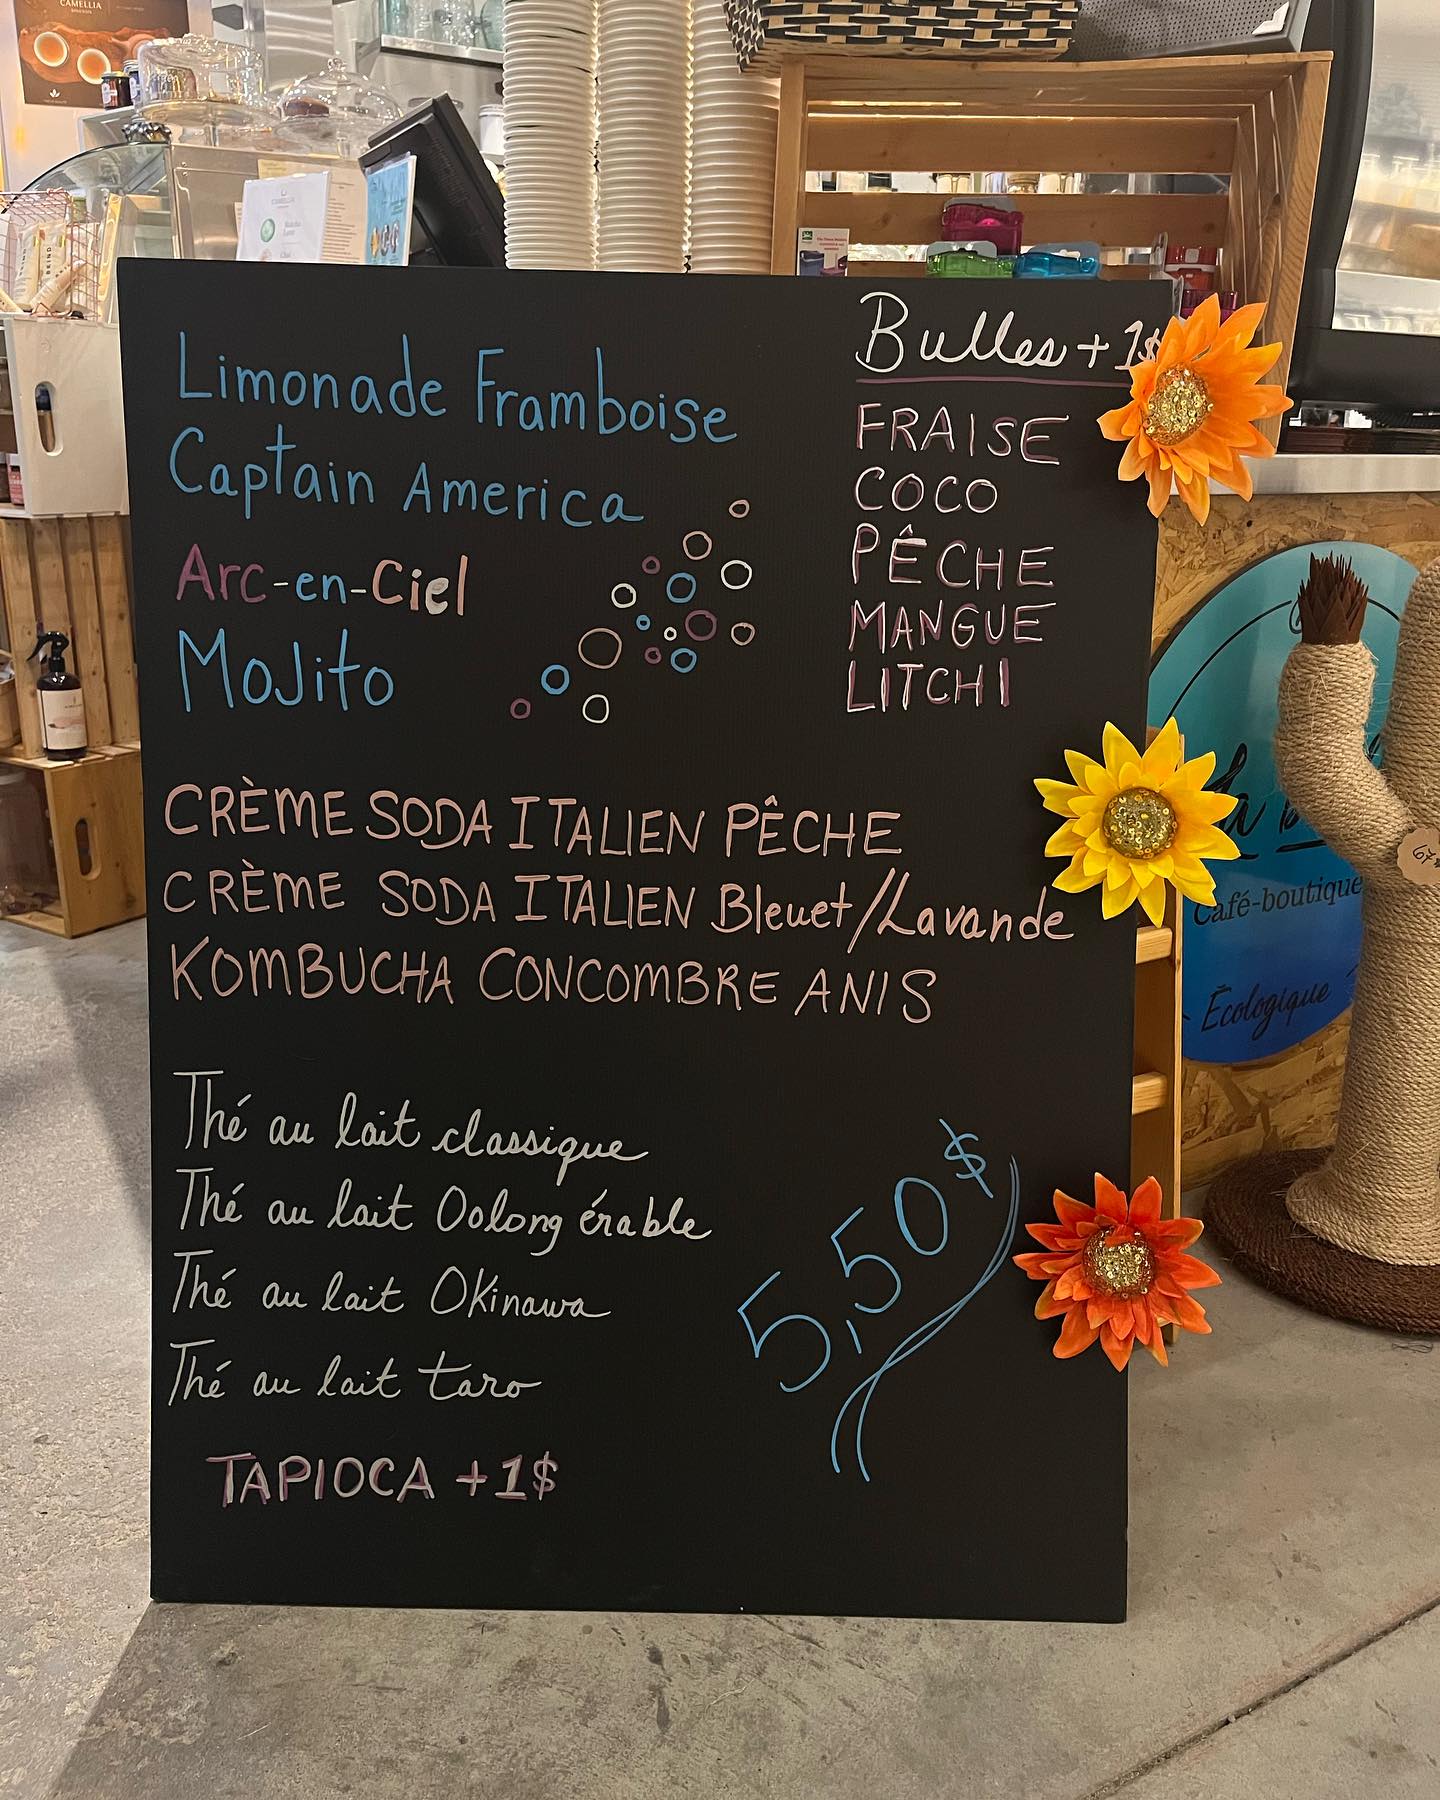 CAMELLIA
Limonade Framboise
Captain America
Arc-en-Ciel
Mojito
Bulles + 1$
FRAISE
COCO
PÊCHE
MANGUE
LITCHI
CRÈME SODA ITALIEN PÊCHE
CRÈME SODA ITALIEN Bleuet/Lavande
KOMBUCHA CONCOMBRE ANIS
Thé au lait classique
Thé au lait Oolong érable
Thé au lait Okinawa
Thé au lait taro
TAPIOCA +1$
5,50$
La
Café-boutique
Écologique